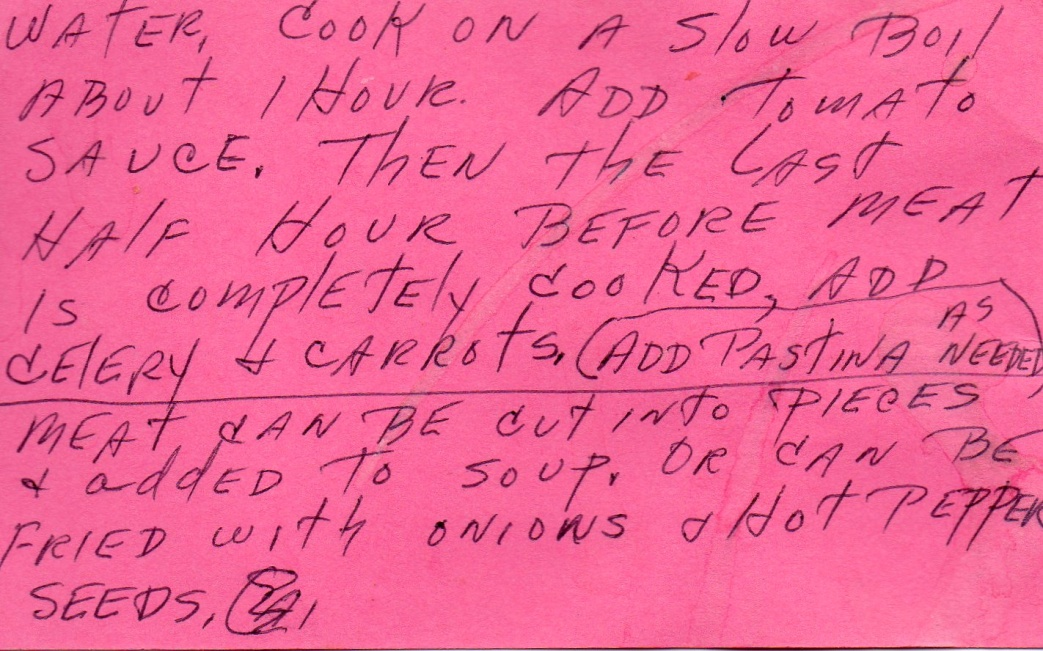 WATER, COOK ON A SLOW BOIL
ABOUT 1 HOUR. ADD TOMATO
SAUCE. THEN THE LAST
HALF HOUR BEFORE MEAT
IS COMPLETELY COOKED, ADD
CELERY & CARROTS. (ADD PASTINA AS NEEDED)
MEAT CAN BE CUT INTO PIECES
& addED TO SOUP. OR CAN BE
FRIED WITH ONIONS & HOT PEPPER
SEEDS.